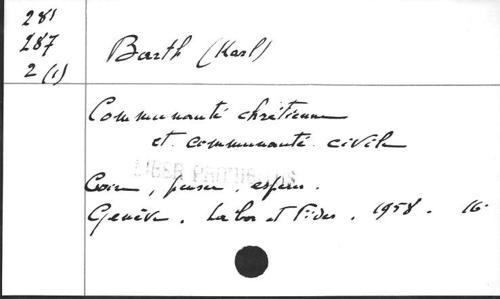 281
287
2 (1)
Barth (Karl)
Communauté chrétienne
et communauté civile
LIBER PROHIBITUS
Croire, penser, espérer.
Genève. Labor et Fides. 1958. 16